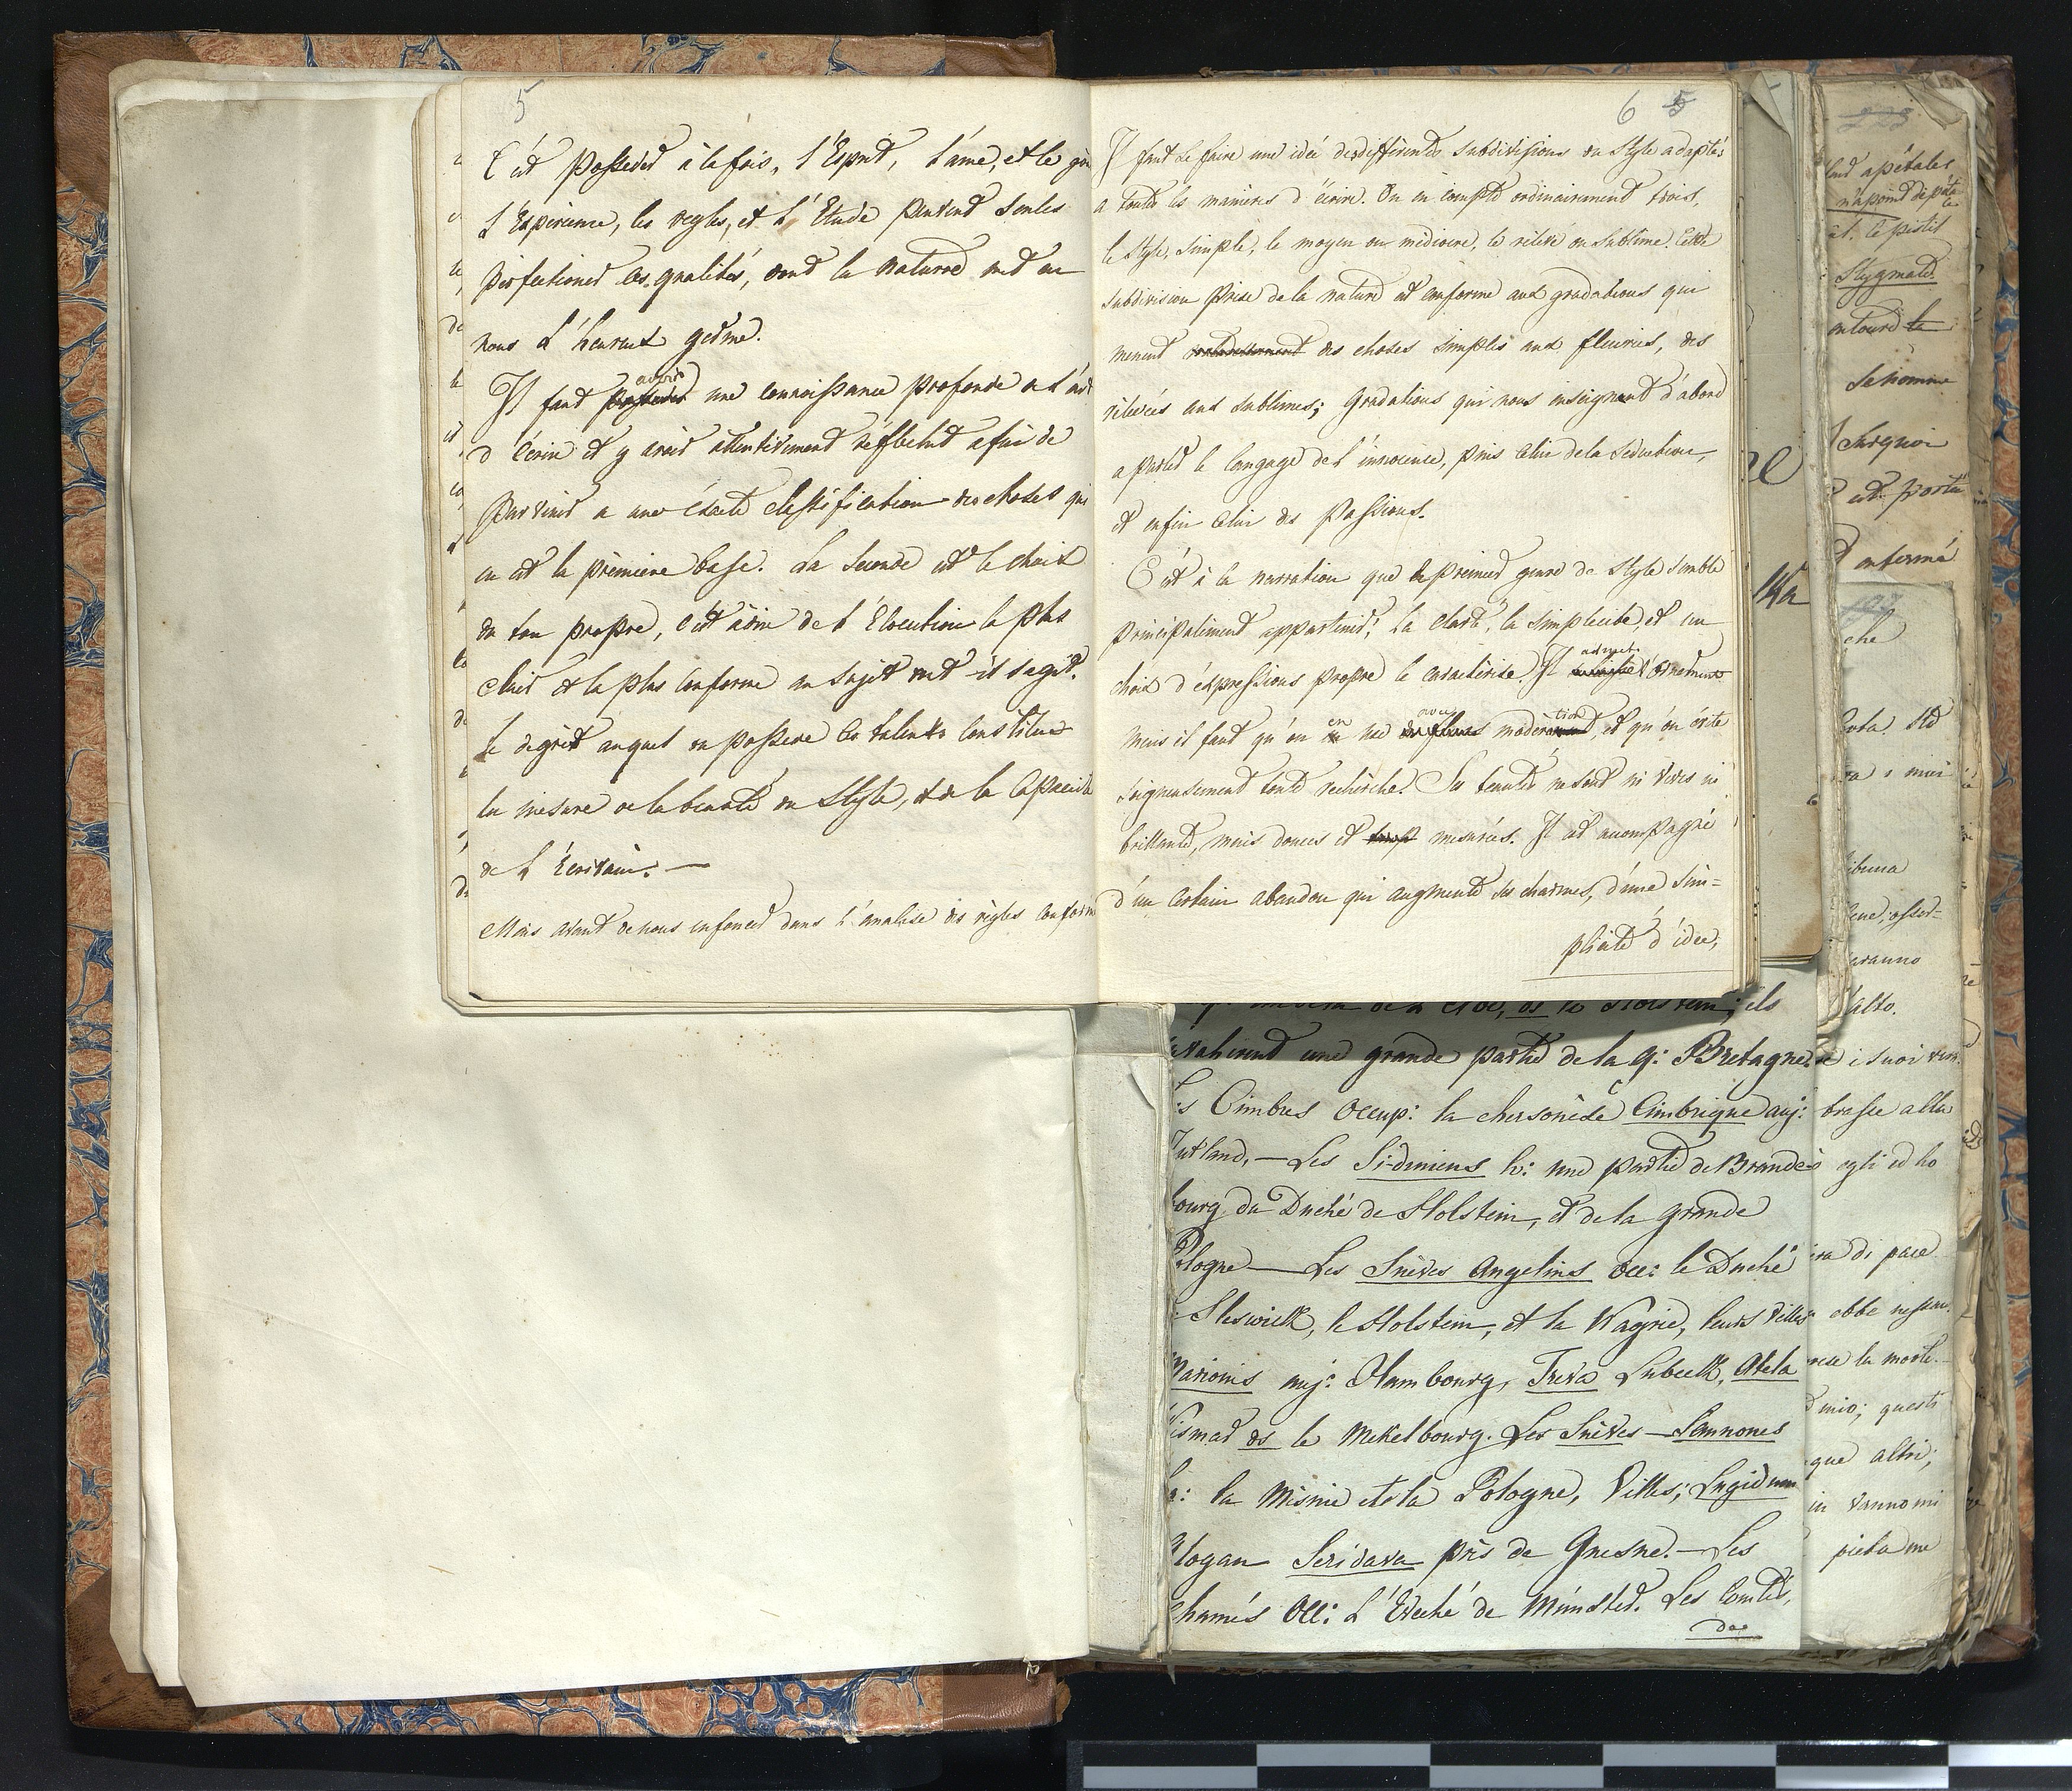 5
C'èt Posseder à la fois, l'Esprit, l'ame, et le
L'Expèrience, les regles, et L'Etude peuvent seules
perfectioner les qualités, dont la nature met en
nous L'heureux germe.
Il faut avoir une connoissance profonde de l'art
d'écrire et y avoir attentivement réflechit afin de
parvenir a une éxacte classification des choses qui
en est la première base. La seconde est le choix
du ton propre, c'est à dire de l'Elocution la plus
clair et la plus conforme au sujet dont il s'agit.
Le degrèt auquel on possede ces talents constitue
la mesure de la beauté du style, et de la Capacité
de L'Ecrivain. —
Mais avant de nous enfoncer dans l'analise des règles
6 5
Il faut se faire une idée des differentes subdivisions du style adaptés
a toutes les manières d'écrire. On en compte ordinairement trois,
le style simple, le moyen ou mèdiocre, le rélevé ou sublime. Cette
subdivision prise de la nature est conforme aux gradations qui
menent des choses simples aux fleuries, des
rélevées aux sublimes; Gradations qui nous enseignent d'abord
a parler le langage de l'innocence, puis celui de la séduction,
et enfin celui des Passions.
C'èt à la narration que le premier genre de style semble
principalement appartenir; La clarté, la simplicité, et un
choix d'éxpressions propre le caractèrise. Il admet l'ornement
mais il faut qu'on en use avec modération, et qu'on évite
soigneusement toute recherche. Ses beautés ne sont ni vives ni
brillantes, mais douces et mesurées. Il est accompagné
d'un certain abandon qui augmente ses charmes, d'une sim=
plicité d'idée,
le Holstein; ils
envahirent une grande partie de la g: Bretagne.
Cimbres Occup: la chersonèse Cimbrique auj:
Jutland, — Les Sidiniens h: une partie de Brande
bourg du Duché de Holstein, et de la grande
Pologne — Les Suèves Angelins Occ: le Duché
Sleswick, le Holstein, et la Wagrie, leurs villes
Marionis auj: Hambourg, Treva Lubeck, Atela
Wismar ds le Mekelbourg. Les Suèves — Sennones
la Misnie et la Pologne, Villes; Lugidunum
Glogau Seridava près de Gnesne. — Les
Occ: L'Eveché de Münster. Les
apétales
n'a point de péta
le
le pistil
Stygmate
entouré
Se nomme
enferme
14a
alto.
i suoi
alla
egli ed ho
di pace
ebbe
la morte.
mio; questi
altri;
in vanno mi
pieta me